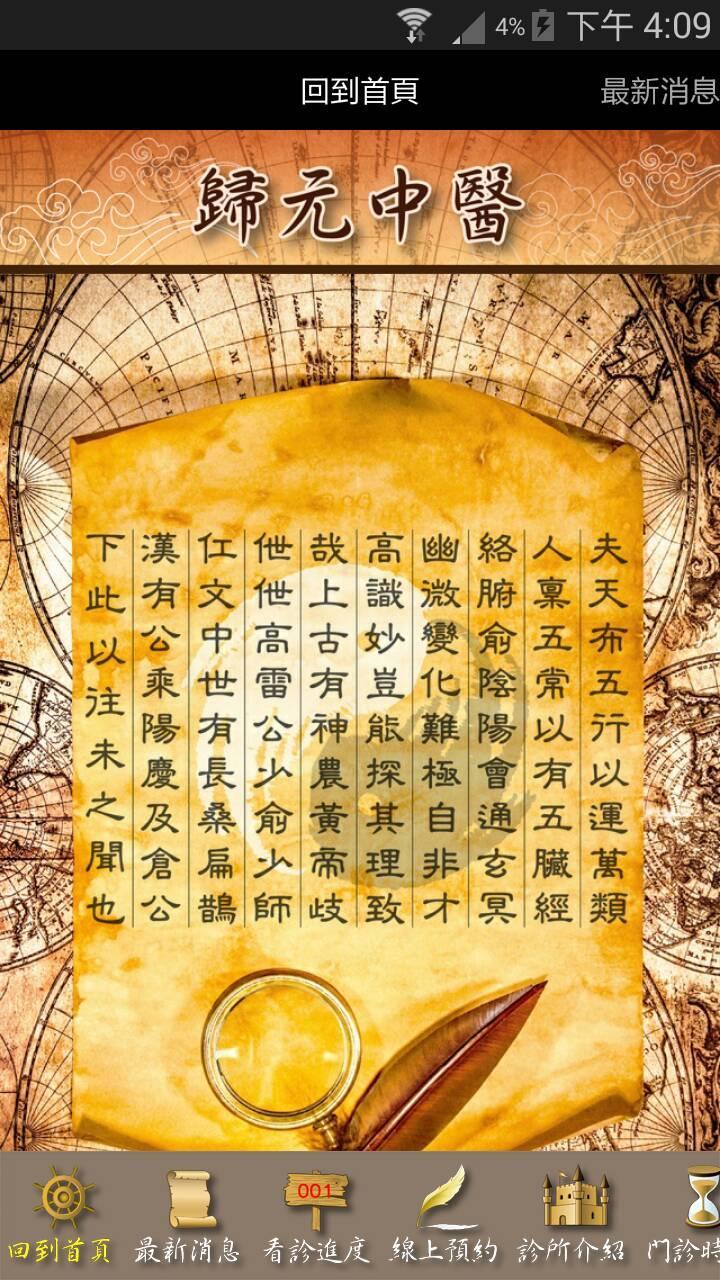 4% 下午 4:09
回到首頁 最新消息
歸元中醫
夫天布五行以運萬類
人稟五常以有五臟經
絡腑俞陰陽會通玄冥
幽微變化難極自非才
高識妙豈能探其理致
哉上古有神農黃帝歧
伯伯高雷公少俞少師
仁文中世有長桑扁鵲
漢有公乘陽慶及倉公
下此以往未之聞也
001
回到首頁 最新消息 看診進度 線上預約 診所介紹 門診時